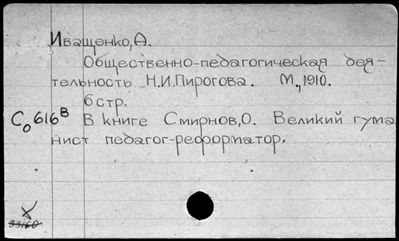 Иващенко, А.
Общественно-педагогическая дея-
тельность Н.И.Пирогова. М., 1910.
6 стр.
Со616В В книге Смирнов, О. Великий гума
нист педагог-реформатор.
X
33160